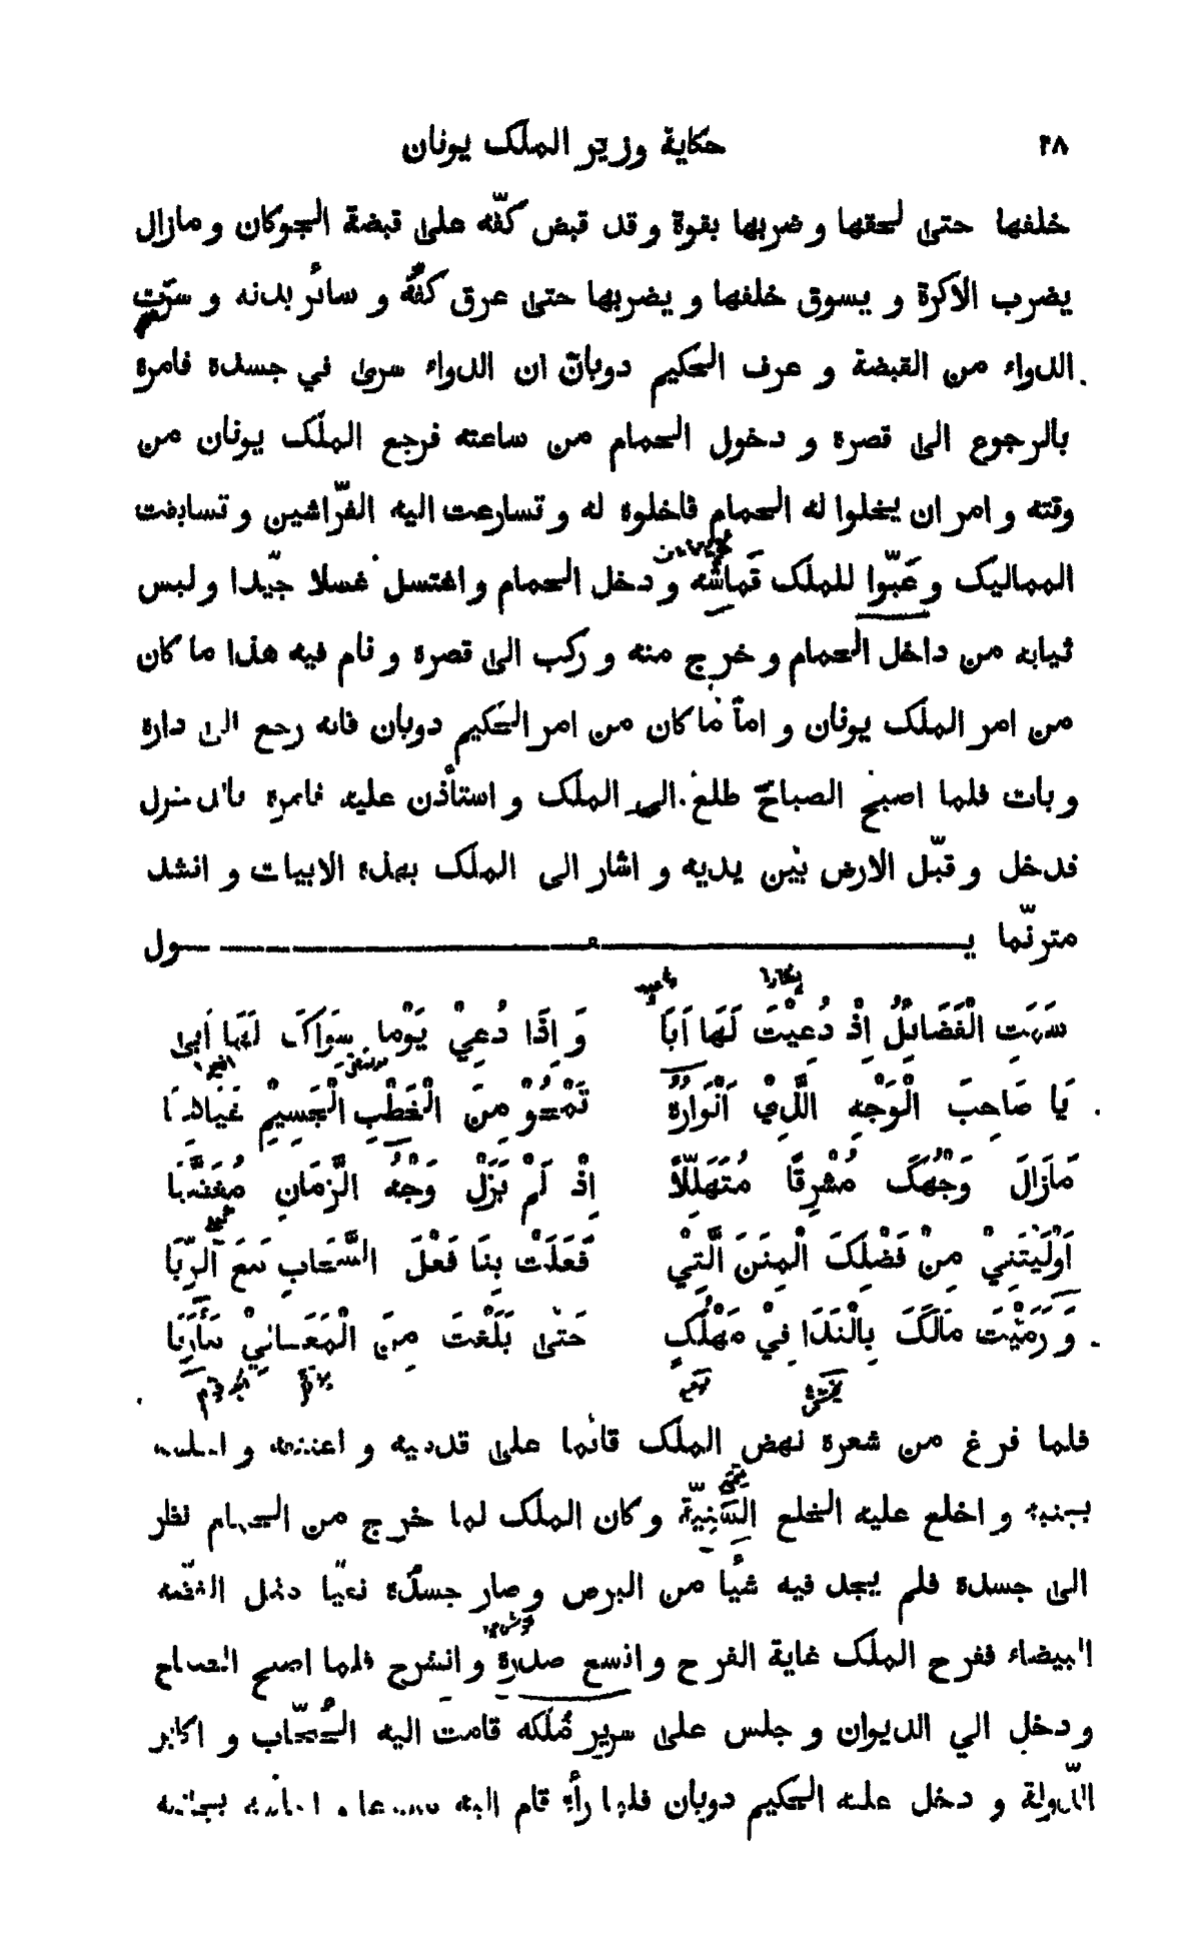 ٢٨ حكاية وزير الملك يونان
خلفها حتى لحقها و ضربها بقوة و قد قبض كفّه على قبضة الجوكان و مازال
يضرب الاكرة و يسوق خلفها و يضربها حتى عرق كفُّه و سائر بدنه و سرّت
الدواء من القبضة و عرف الحكيم دوبان ان الدواء سرى في جسده فامره
بالرجوع الى قصره و دخول الحمام من ساعته فرجع الملك يونان من
وقته و امر ان يخلوا له الحمام فاخلوه له و تسارعت اليه الفرّاشين و تسابقت
المماليك و عَبّوا للملك قَماشه و دخل الحمام و اغتسل غسلا جيّدا و لبس
ثيابه من داخل الحمام و خرج منه و ركب الى قصره و نام فيه هذا ما كان
من امر الملك يونان و امّا ما كان من امر الحكيم دوبان فانه رجع الى داره
و بات فلما اصبح الصباح طلع الى الملك و استأذن عليه فامره بالدخول
فدخل و قبّل الارض بين يديه و اشار الى الملك بهذه الابيات و انشد
مترنّما يـــــــول
سَمَتِ الْفَضَائِلُ اِذْ دُعِيْتَ لَهَا اَبَا وَ اِذَا دُعِيْ يَوْما سِوَاكَ لَهَا اَبىٰ
يَا صَاحِبَ الْوَجْهِ الَّذِيْ اَنْوَارُهُ تَمْحُوْ مِنَ الْخَطْبِ الْجَسِيْمِ غَيَاهِبَا
مَازَالَ وَجْهُكَ مُشْرِقًا مُتَهَلِّلًا اِذْ لَمْ يَزَلْ وَجْهُ الزَّمَانِ مُغَضَّبَا
اَوْلَيْتَنِيْ مِنْ فَضْلِكَ الْمِنَنَ الَّتِيْ فَعَلَتْ بِنَا فَعْلَ السَّحَابِ مَعَ الرُّبَا
وَ رَمَيْتَ مَالَكَ بِالْنَدَا فِيْ مَهْلَكٍ حَتىٰ بَلَغْتَ مِنَ الْمَعَالِيْ مَأْرَبَا
فلما فرغ من شعره نهض الملك قائما على قدميه و اعتنقه و اجلسه
بجنبه و اخلع عليه الخلع السَّنِيّة و كان الملك لما خرج من الحمام نظر
الى جسده فلم يجد فيه شيأ من البرص و صار جسده نقيّا مثل الفضّه
البيضاء ففرح الملك غاية الفرح و اتسع صدره و انشرح فلما اصبح الصباح
و دخل الي الديوان و جلس على سرير مُلكه قامت اليه الحُجّاب و اكابر
الدّولة و دخل عليه الحكيم دوبان فلما رأه قام اليه مسرعا و اجلسه بجانبه